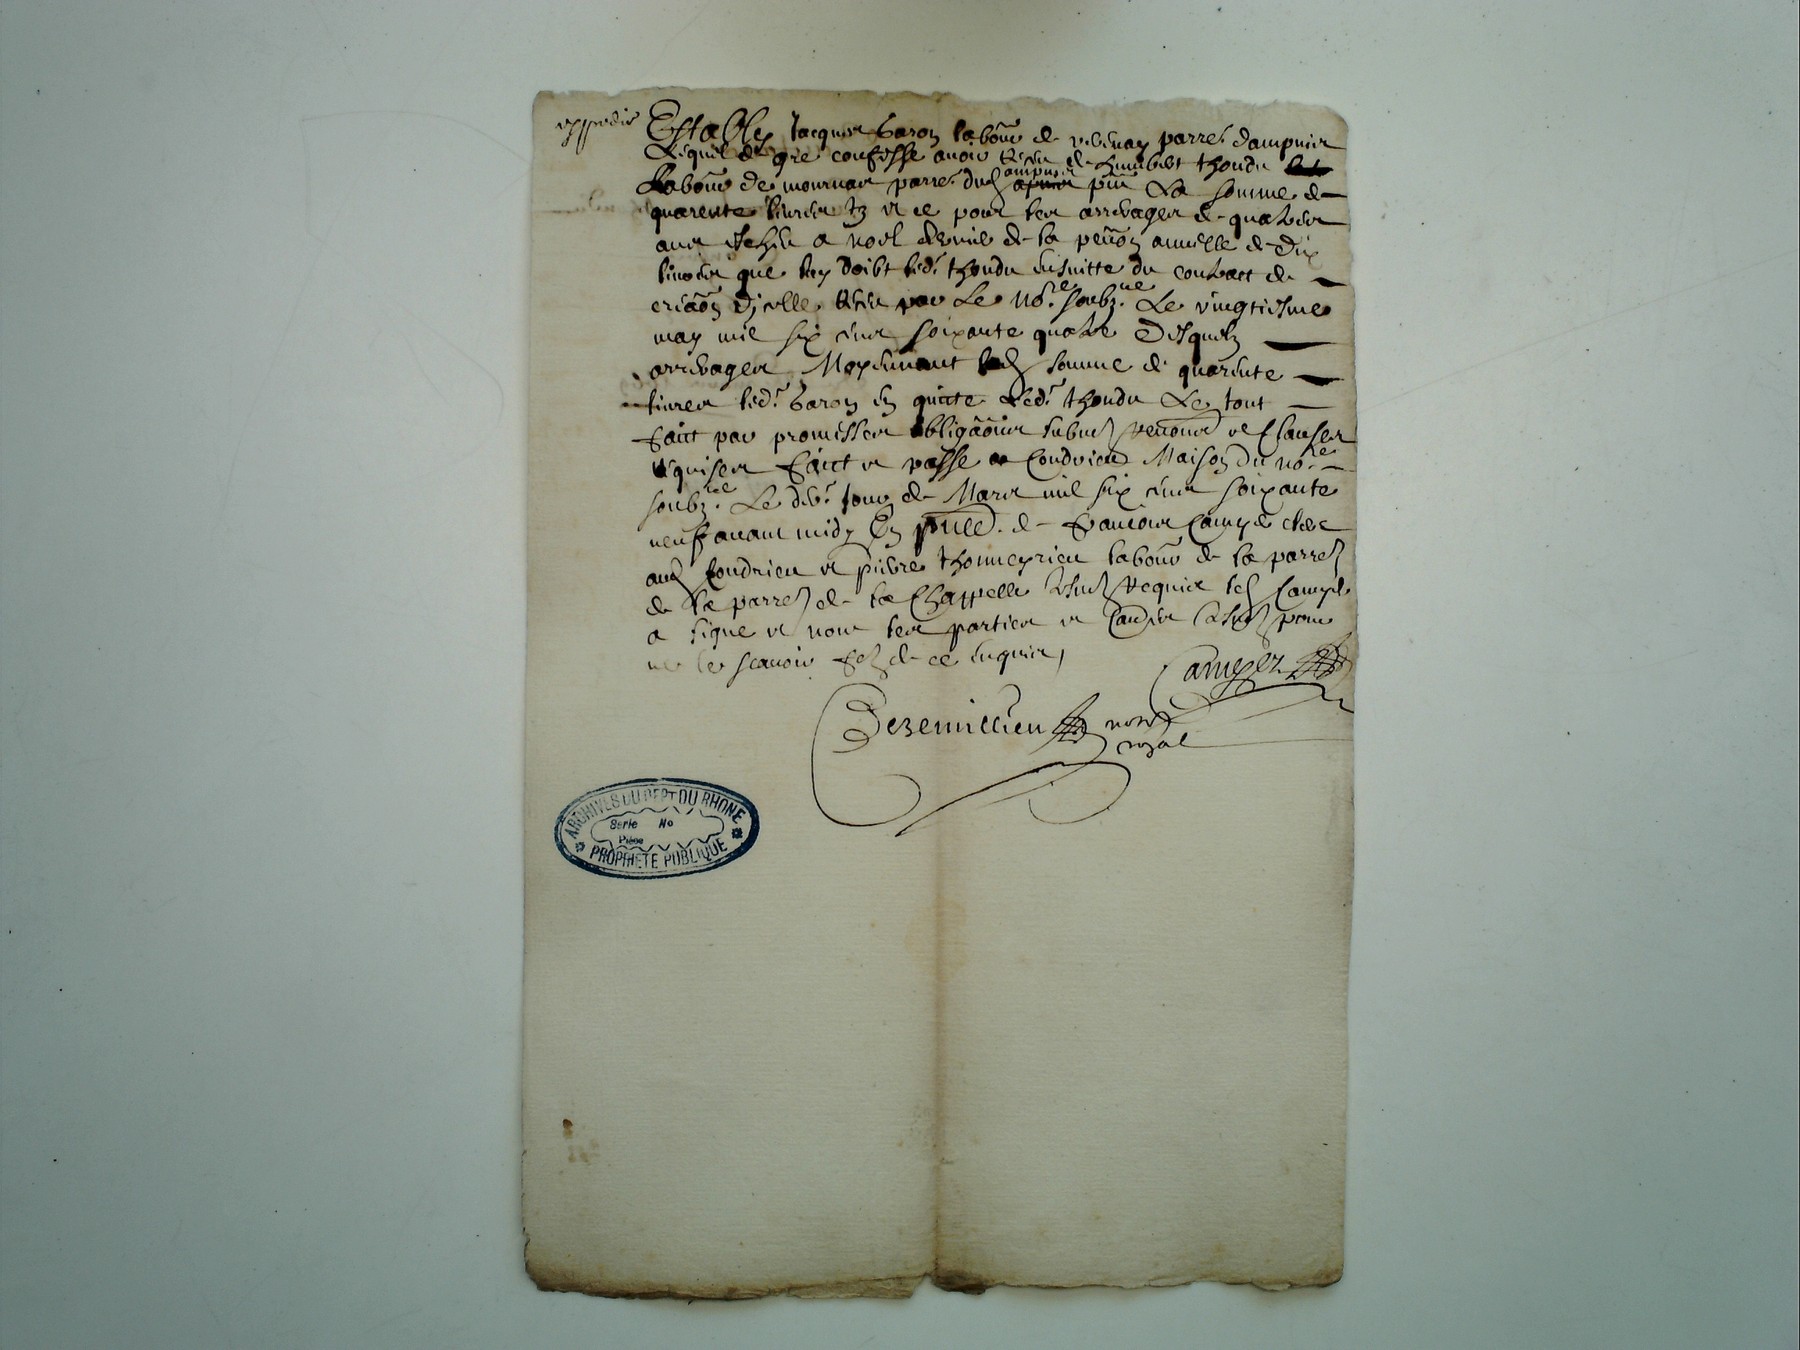 expedie
Estably Jacques Baron labôur de verenay parre. dampuier
Lequel de gre confesse avoir receu de humbert thondu
Labôur de mournas parre. dud ampuier pñt La somme de
quarente livres tz et ce pour les arrerages de quatre
ans escheu a noel dernier de la penôn annuelle de dix
livres que luy doibt led. thondu ensuitte du contract de
creaôn dicelle receu par Le nore. soubzne. Le vingtiesme
may mil six cens soixante quatre Desquelz
arrerages Moyennant lad somme de quarente
livres led. Baron en quitte Led. thondu Le tout
faict par promisses obligaôns submd renonôns et clauses
requises faict et passe a Condrieu Maison du nore
soubzne. Le dix. jour de Mars mil six cens soixante
neuf avant midy En pñce. de françois Campez clerc
aud Condrieu et pierre thomeyrieu labôur de la parred
de la parred de la Chappelle requis led Campez
a signe et non les parties et pour
ne le scavoir de ce enquis,
Campez
Dezemillieu nore
royal
ARCHIVES DU DEPT DU RHONE
Serie No
Pièce
PROPRIETE PUBLIQUE